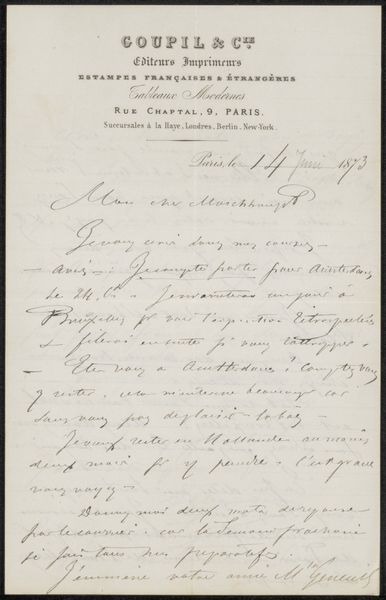 GOUPIL & CIE
Editeurs Imprimeurs
ESTAMPES FRANÇAISES & ÉTRANGÈRES
Tableaux Modernes
RUE CHAPTAL, 9, PARIS.
Succursales à la Haye, Londres, Berlin, New-York.
Paris, le 14 Juin 1873
Mon cher
Je vous écris dans mes courses
avis Je compte partir pour Amsterdam
le 24 Ct à
Bruxelles pr voir l'exposition
& filerai ensuite pr vous rattrapper
Etes vous à Amsterdam & Comptez vous
y rester
sans vous pas déplaire
Je veux rester en Hollande au moins
deux mois pr y peindre. c'est grave
vous voyez
Donnez moi deux mots de réponse
par le courrier. car la Semaine prochaine
je fais tous mes préparatifs.
J'emmène votre amie